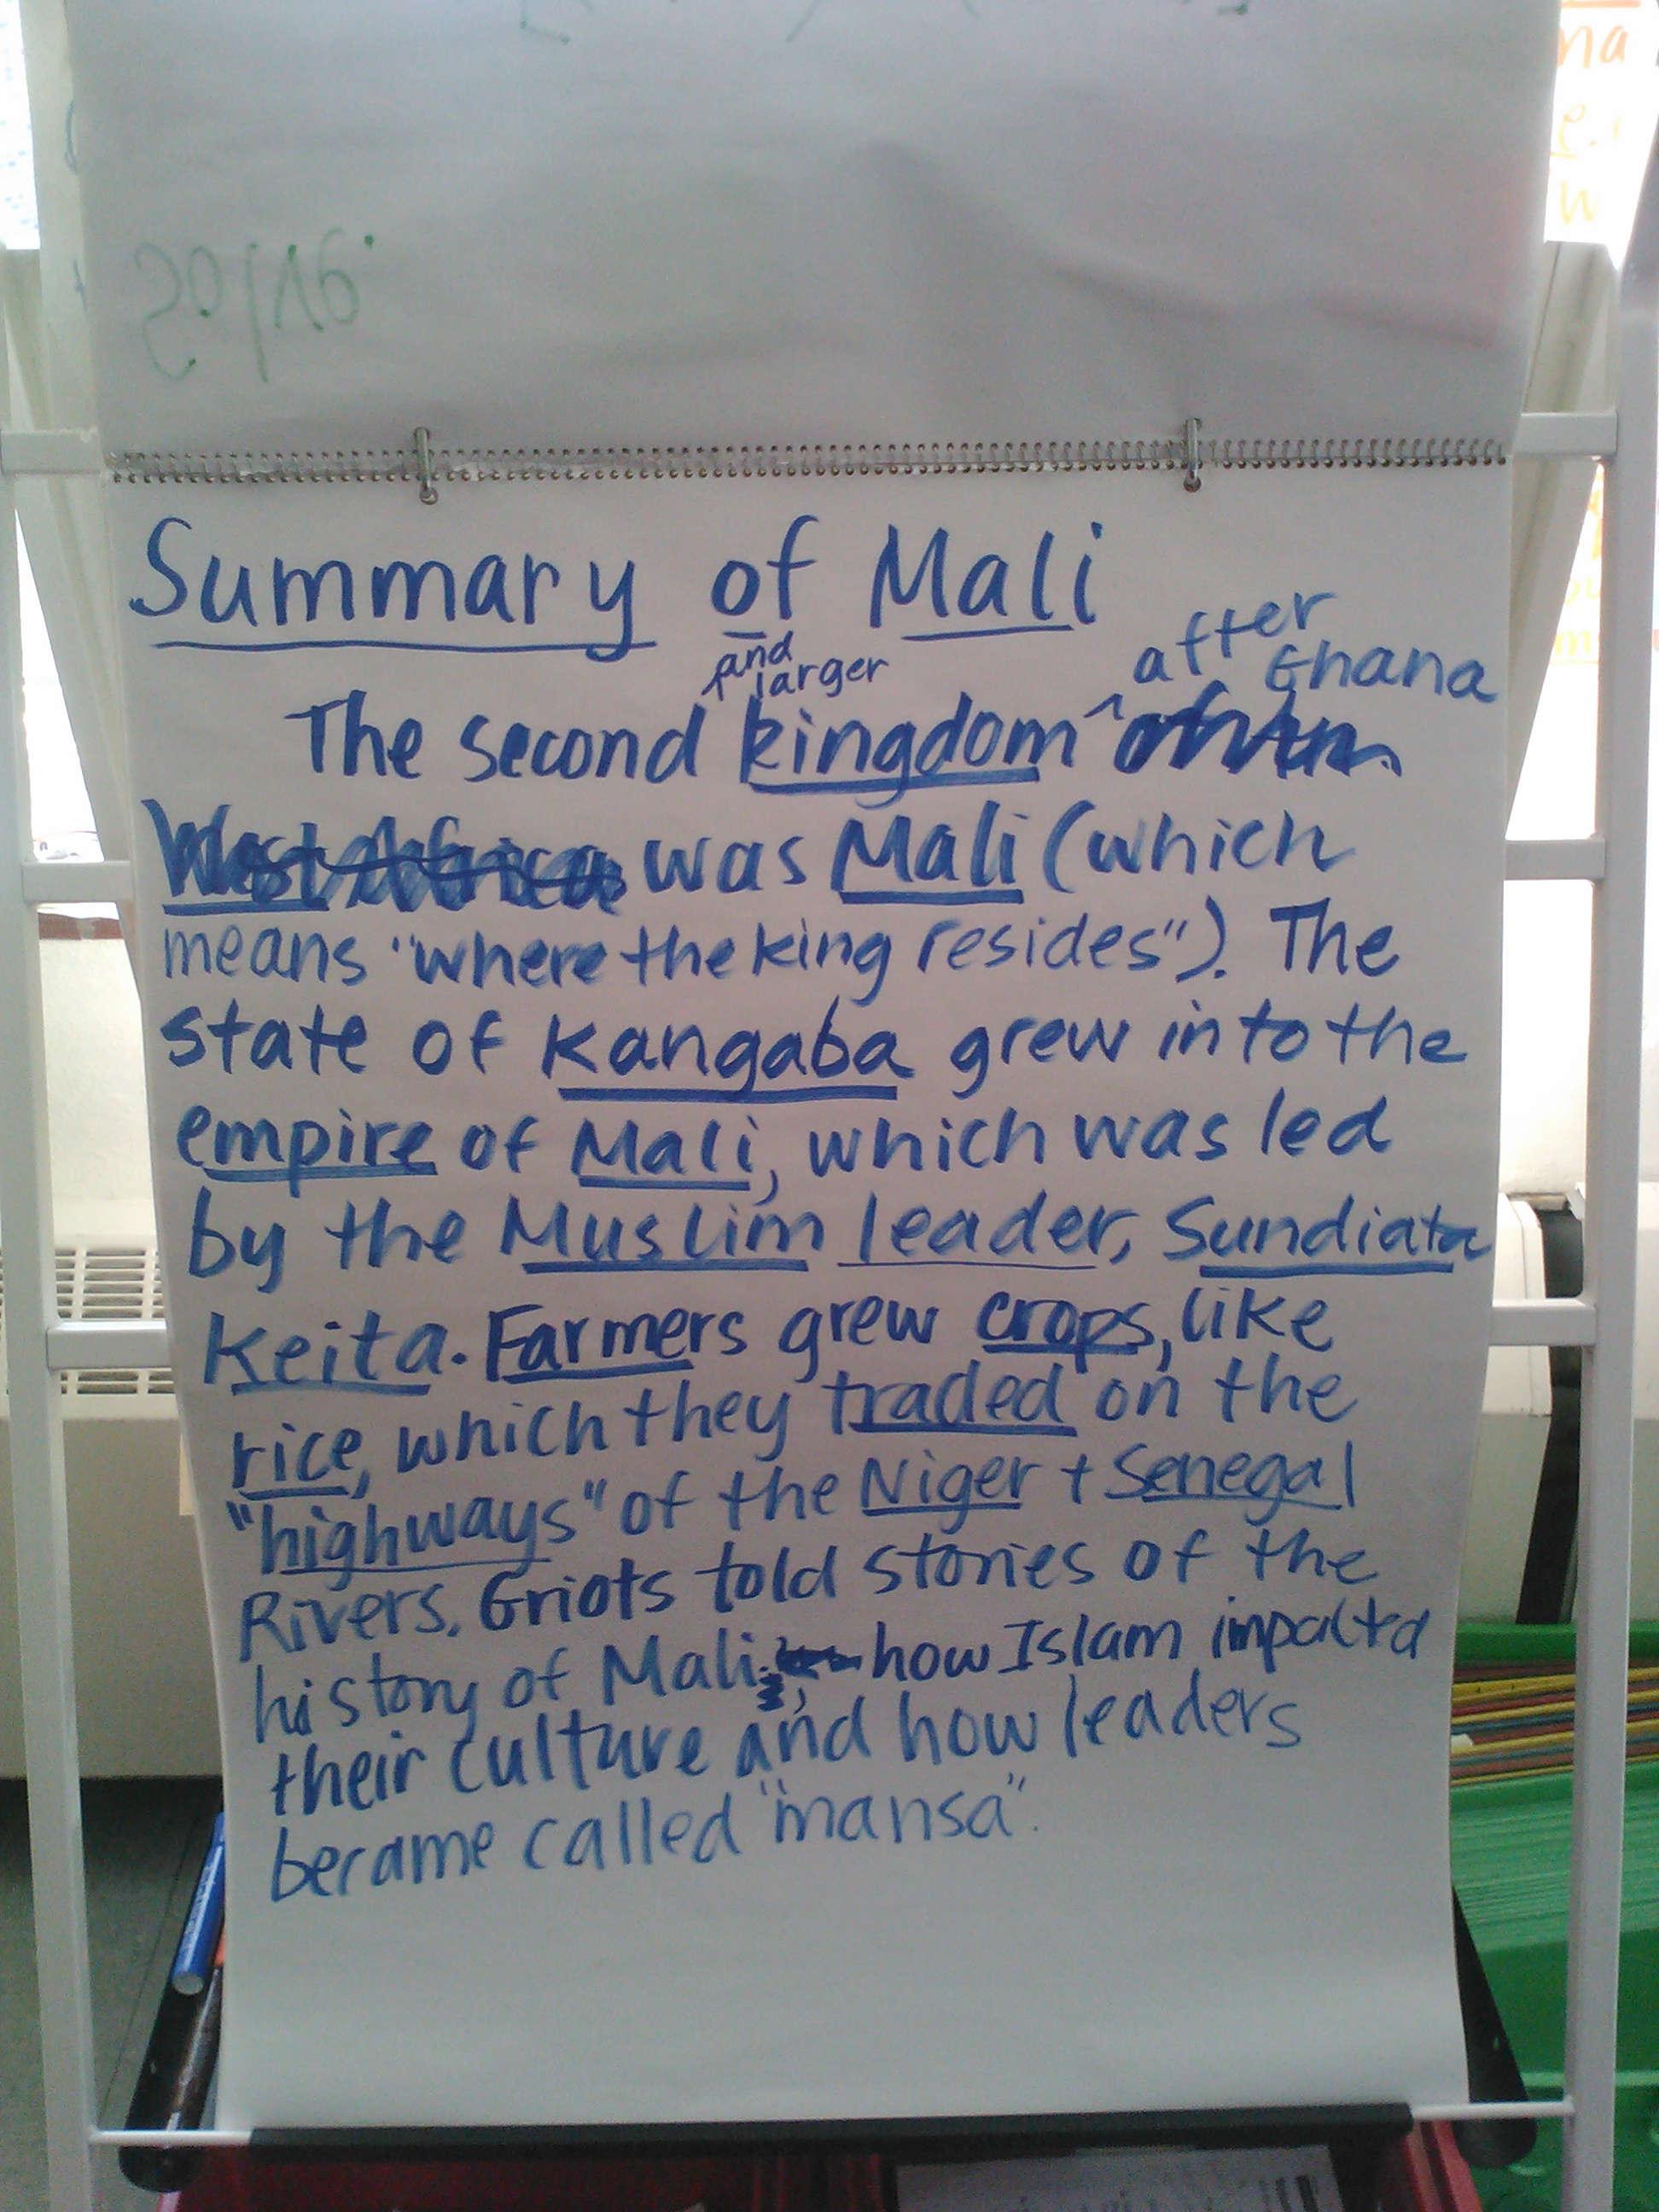 Summary of Mali
and
larger
after
Ghana
The second kingdom ^
West Africa was Mali (which
means "where the king resides"). The
state of Kangaba grew into the
empire of Mali, which was led
by the Muslim leader, Sundiata
Keita. Farmers grew crops, like
rice, which they traded on the
"highways" of the Niger + Senegal
Rivers. Griots told stories of the
history of Mali, how Islam impacted
their culture and how leaders
became called "mansa".